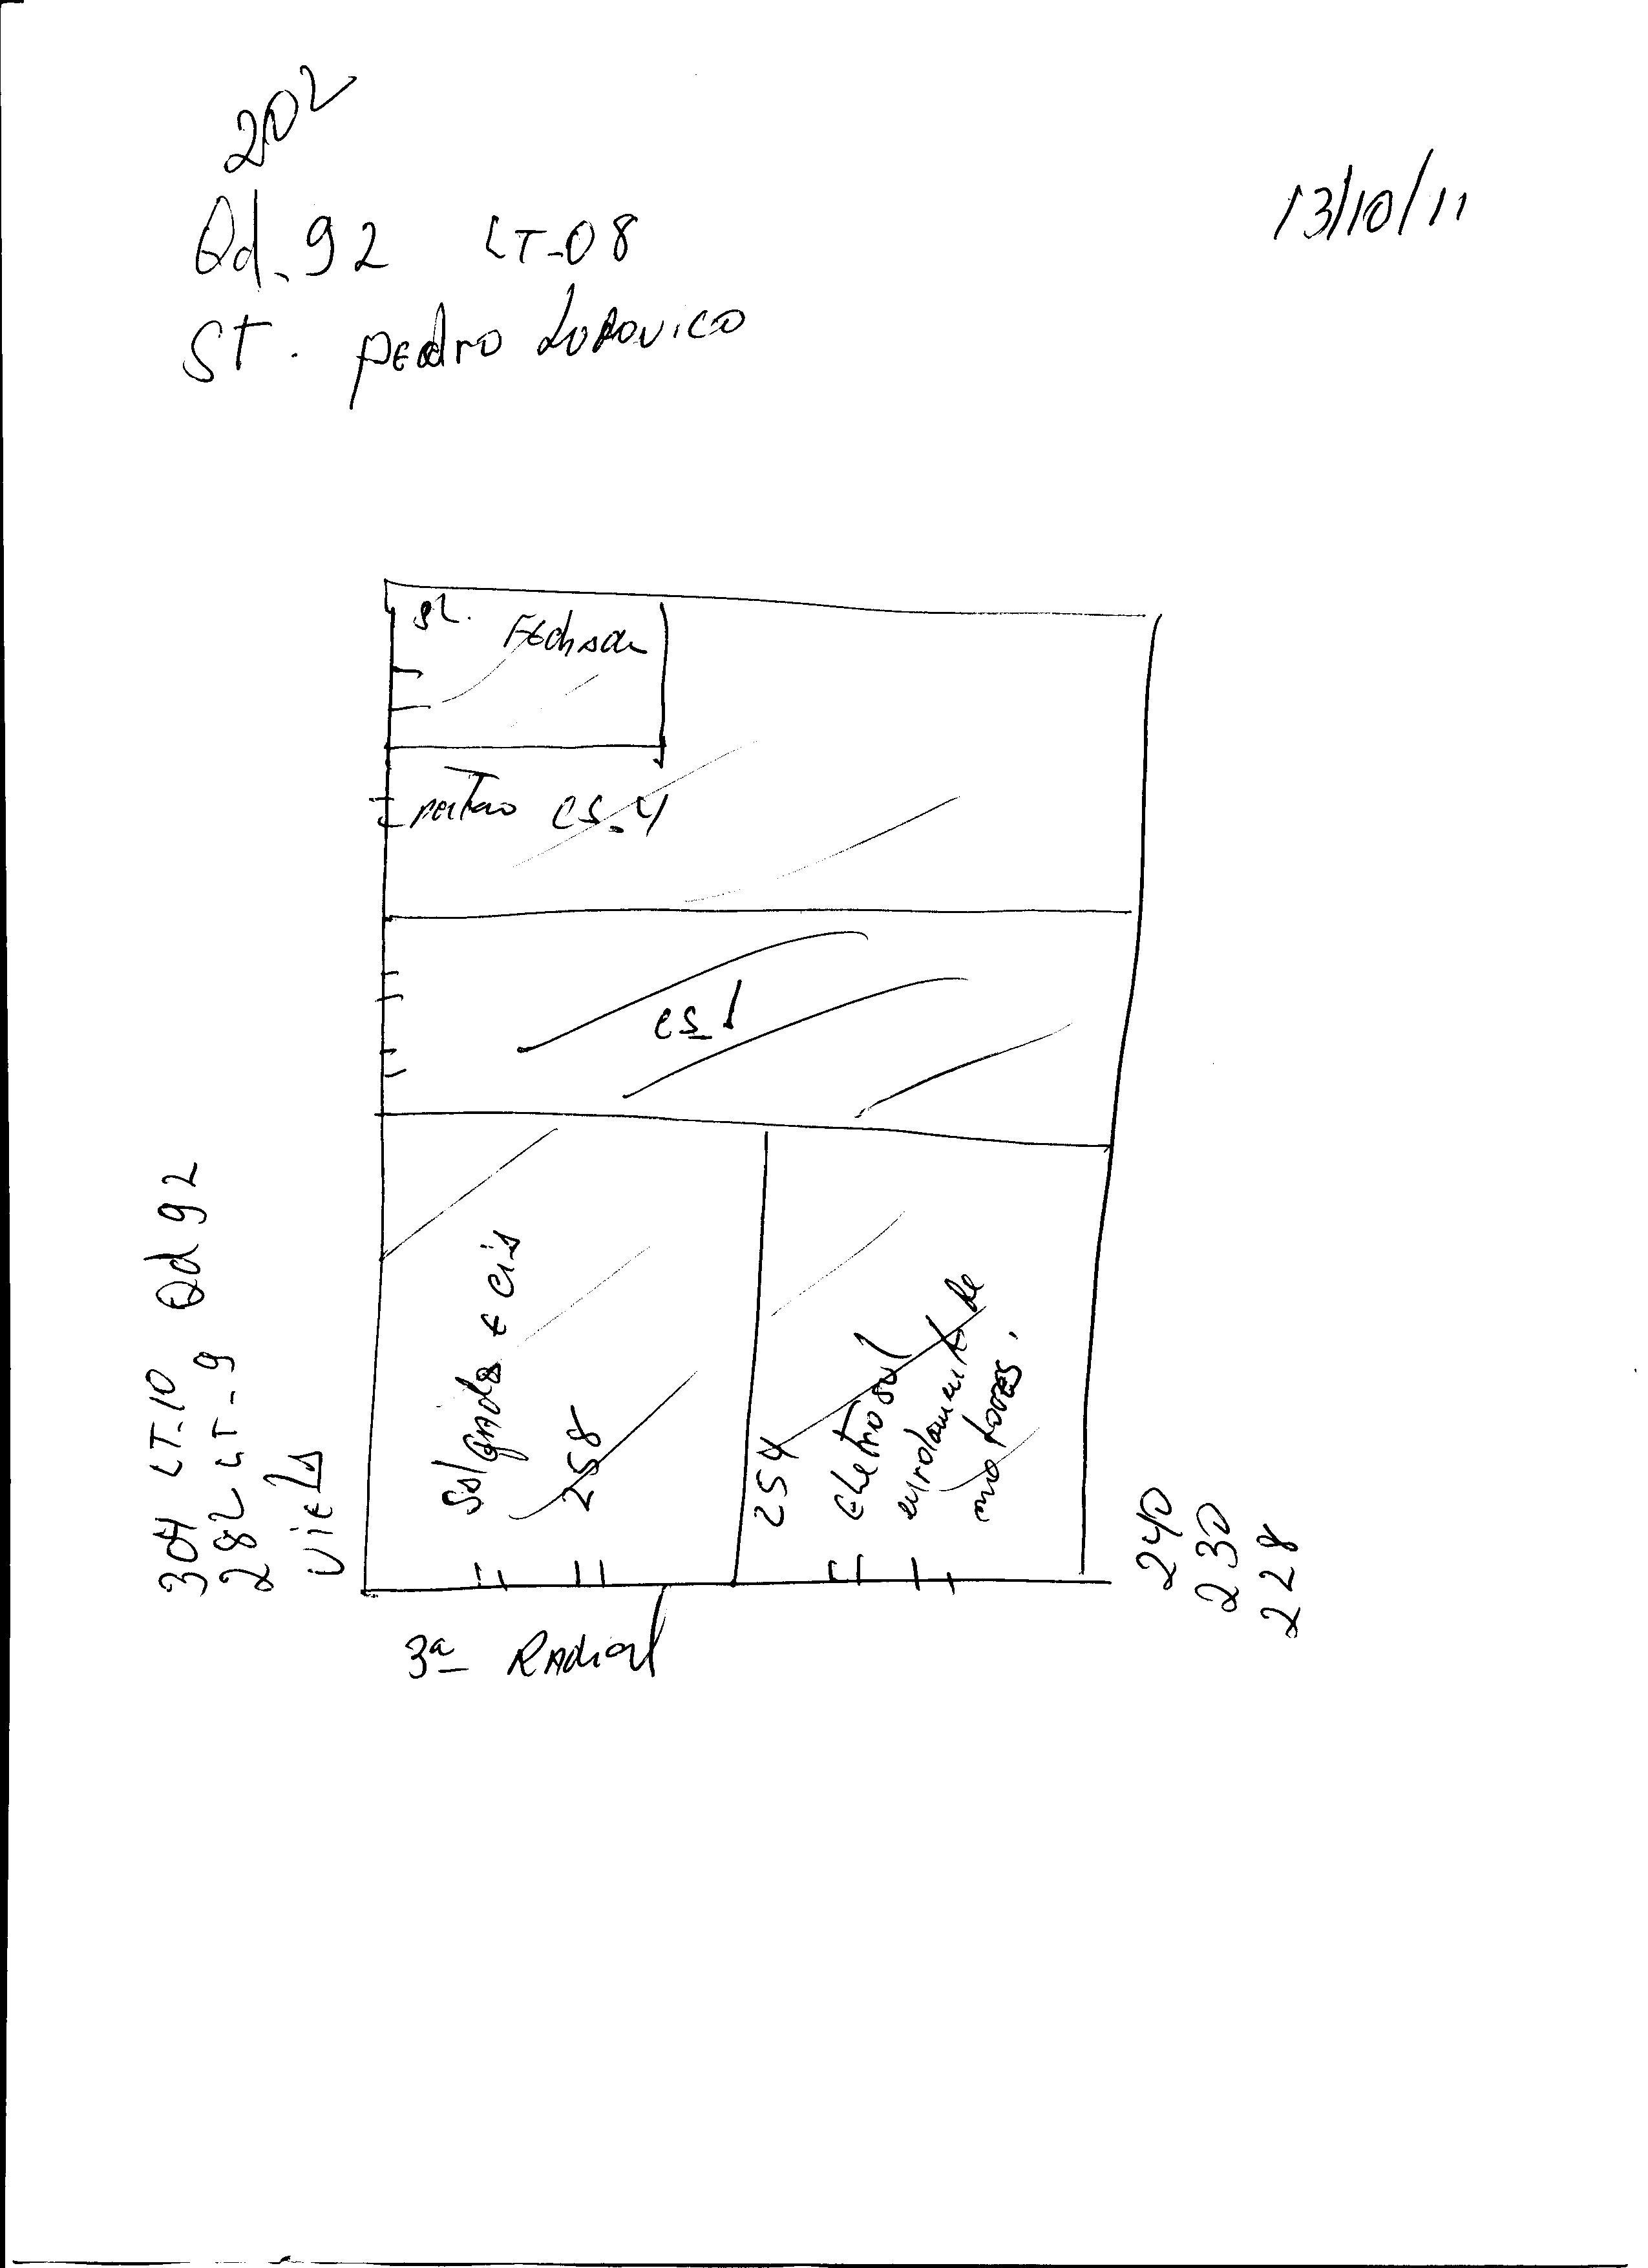 202
13/10/11
Qd. 92 LT-08
ST. Pedro Ludovico
sl.
portao cs-4
cs-1
304 LT-10 Qd 92
282 LT-9
Viela
Salgados e cia
258
254
Eletrosul
enrolamento de
motores.
240
230
228
3ª Radial